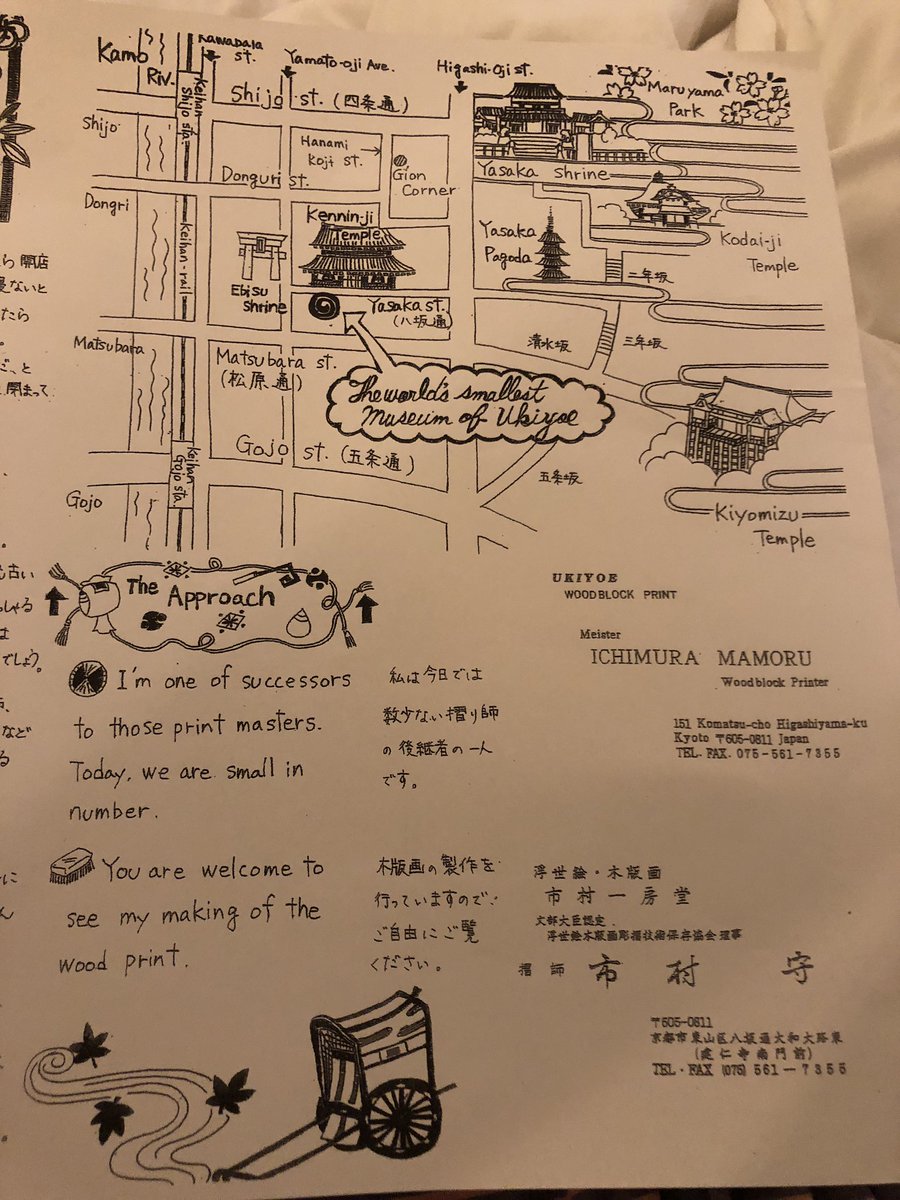 Kamo
Riv.
Kawabata
st.
Yamato-oji Ave.
Higashi-Oji st.
Maruyama
Park
Keihan
Shijo sta.
Shijo st. (四条通)
Shijo
Hanami
Koji st.
Gion
Corner
Yasaka Shrine
Donguri st.
Dongri
Keihan-rail
Kennin-ji
Temple
Yasaka
Pagoda
Kodai-ji
Temple
二年坂
Ebisu
Shrine
Yasaka st.
(八坂通)
清水坂
三年坂
Matsubara
Matsubara st.
(松原通)
The world's smallest
Museum of Ukiyoe
Gojo st. (五条通)
Keihan
Gojo sta.
五条坂
Gojo
Kiyomizu
Temple
The Approach
I'm one of successors
to those print masters.
Today, we are small in
number.
私は今日では
数少ない摺り師
の後継者の一人
です。
You are welcome to
see my making of the
wood print.
木版画の製作を
行っていますので、
ご自由にご覧
ください。
UKIYOE
WOODBLOCK PRINT
Meister
ICHIMURA MAMORU
Woodblock Printer
151 Komatsu-cho Higashiyama-ku
Kyoto 〒605-0811 Japan
TEL. FAX. 075-561-7355
浮世絵・木版画
市村一房堂
文部大臣認定
浮世絵木版画彫摺技術保存協会理事
摺師 市村 守
〒605-0811
京都市東山区八坂通大和大路東
(建仁寺南門前)
TEL・FAX (075) 561-7355